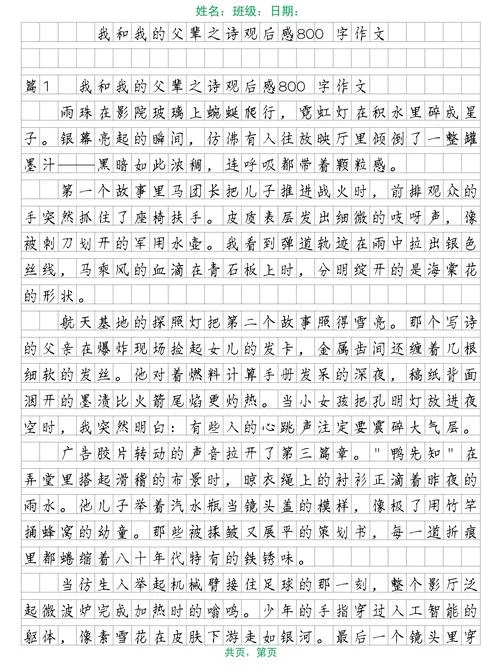 姓名：班级：日期：
我和我的父辈之诗观后感800 字作文
篇1 我和我的父辈之诗观后感800 字作文
雨珠在影院玻璃上蜿蜒爬行，霓虹灯在积水里碎成星
子。银幕亮起的瞬间，仿佛有人往放映厅里倾倒了一整罐
墨汁——黑暗如此浓稠，连呼吸都带着颗粒感。
第一个故事里马团长把儿子推进战火时，前排观众的
手突然抓住了座椅扶手。皮质表层发出细微的吱呀声，像
被刺刀划开的军用水壶。我看到弹道轨迹在雨中拉出银色
丝线，马乘风的血滴在青石板上时，分明绽开的是海棠花
的形状。
航天基地的探照灯把第二个故事照得雪亮。那个写诗
的父亲在爆炸现场捡起女儿的发卡，金属齿间还缠着几根
细软的发丝。他对着燃料计算手册发呆的深夜，稿纸背面
洇开的墨渍比火箭尾焰更灼热。当小女孩把孔明灯放进夜
空时，我突然明白：有些人的心跳声注定要震碎大气层。
广告胶片转动的声音拉开了第三篇章。"鸭先知"在
弄堂里搭起滑稽的布景时，晾衣绳上的衬衫正滴着昨夜的
雨水。他儿子举着汽水瓶当镜头盖的模样，像极了用竹竿
捅蜂窝的幼童。那些被揉皱又展平的策划书，每一道折痕
里都蜷缩着八十年代特有的铁锈味。
当仿生人举起机械臂接住足球的那一刻，整个影厅泛
起微波炉完成加热时的嗡鸣。少年的手指穿过人工智能的
躯体，像素雪花在皮肤下游走如银河。最后一个镜头里穿
共页，第页